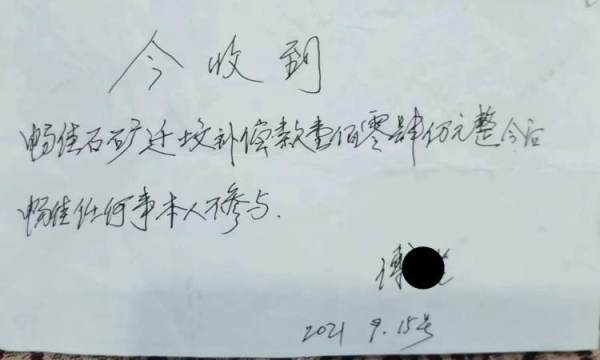 今收到
畅佳石矿迁坟补偿款壹佰零肆仟元整今后
畅佳任何事本人不参与.
2021 9.15号